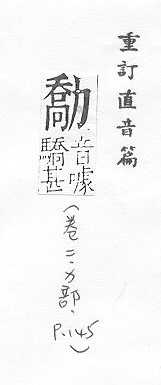 重訂直音篇
勪
音噱
驕甚
(卷二·力部,
P.145)